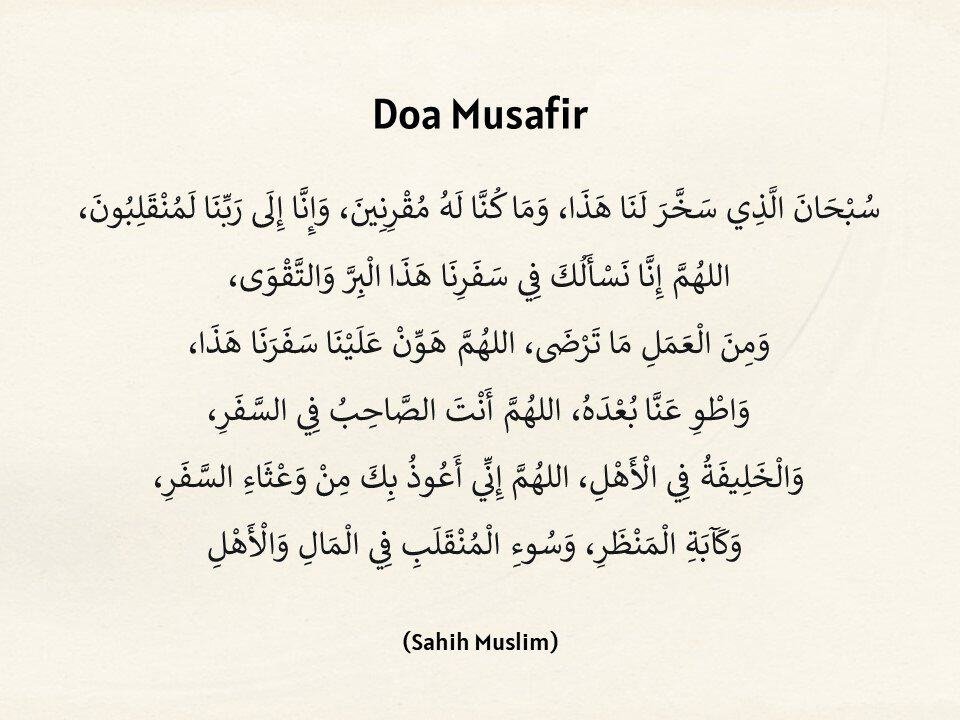 Doa Musafir
سُبْحَانَ الَّذِي سَخَّرَ لَنَا هَذَا، وَمَا كُنَّا لَهُ مُقْرِنِينَ، وَإِنَّا إِلَى رَبِّنَا لَمُنْقَلِبُونَ،
اللهُمَّ إِنَّا نَسْأَلُكَ فِي سَفَرِنَا هَذَا الْبِرَّ وَالتَّقْوَى،
وَمِنَ الْعَمَلِ مَا تَرْضَى، اللهُمَّ هَوِّنْ عَلَيْنَا سَفَرَنَا هَذَا،
وَاطْوِ عَنَّا بُعْدَهُ، اللهُمَّ أَنْتَ الصَّاحِبُ فِي السَّفَرِ،
وَالْخَلِيفَةُ فِي الْأَهْلِ، اللهُمَّ إِنِّي أَعُوذُ بِكَ مِنْ وَعْثَاءِ السَّفَرِ،
وَكَآبَةِ الْمَنْظَرِ، وَسُوءِ الْمُنْقَلَبِ فِي الْمَالِ وَالْأَهْلِ
(Sahih Muslim)